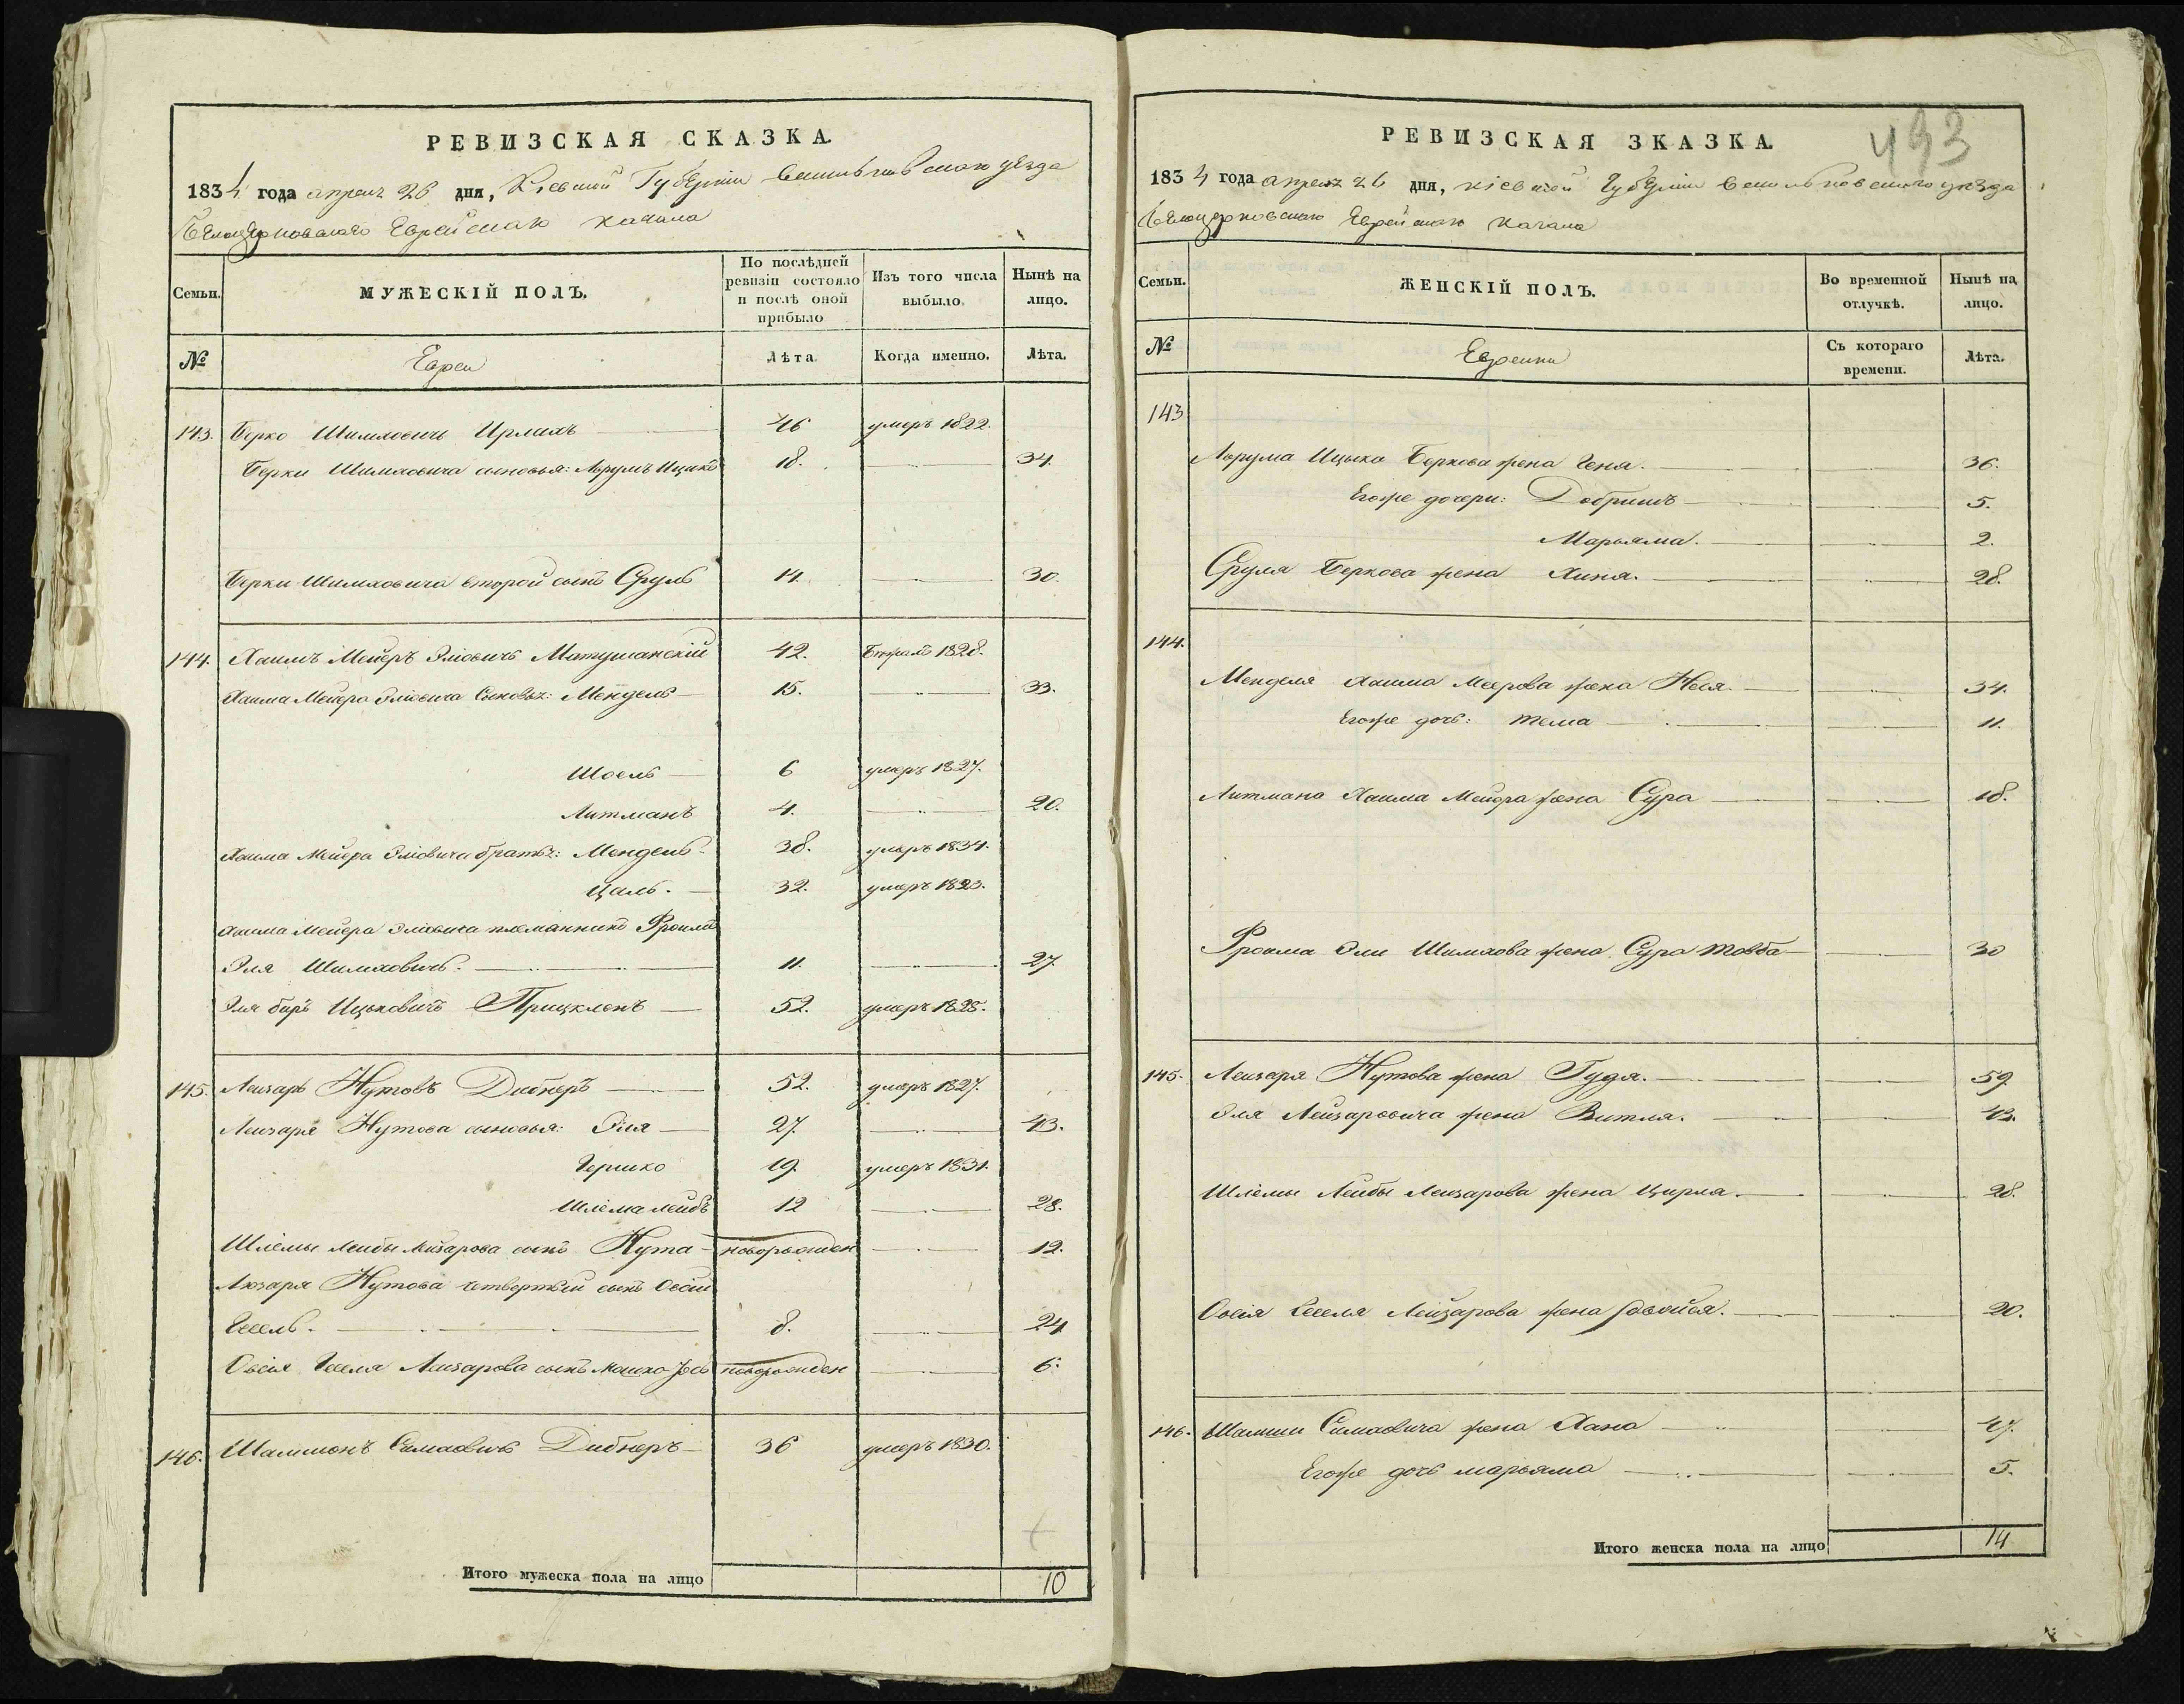 РЕВИЗСКАЯ СКАЗКА.
1834 года апреля 26 дня, Кіевской Губерніи Васильковскаго уезда
Белоцерковскаго Еврейскаго кагала
Семьи.
МУЖЕСКІЙ ПОЛЪ.
По послѣдней ревизіи состояло и послѣ оной прибыло
Изъ того числа выбыло.
Нынѣ на лицо.
№
Евреи
Лѣта.
Когда именно.
Лѣта.
143. Берко Шимховичъ 46 умеръ 1822.
Берки Шимховича сыновья: Аврумъ Ицико 18. 34.
Берки Шимховича второй сынъ Сруль 14. 30.
144. Хаимъ Мейеръ Эліовичъ Матушанскій 42. 1828.
Хаима Мейера Эліовича Сыновья: Мендель 15. 33.
Шоель 6 умеръ 1827.
Литманъ 4. 20.
Хаима Мейера Эліовича братья: Мендель 38. умеръ 1834.
Цаль. 32. умеръ 1823.
Хаима Мейера Эліовича племянникъ Фроимъ
Эля Шимховичъ. 11. 27
Эля беръ Ицьковичъ 52. умеръ 1825.
145. Лейзаръ Нутовъ Дибнеръ 52. умеръ 1827.
Лейзаря Нутова сыновья: Эля 27. 43.
Гершко 19. умеръ 1831.
Шлёма лейбъ 12 28.
Шлёмы Лейбы Лейзарова сынъ Нута новорожден 12.
Лейзаря Нутова четвертый сынъ Овсій
8. 24
Овсія Лейзарова сынъ Мошко новорожден 6.
146. Шамшонъ Симховичъ Дибнеръ 36 умеръ 1830.
Итого мужеска пола на лицо 10
РЕВИЗСКАЯ ЗКАЗКА.
493
1834 года апреля 26 дня, Кіевской Губерніи Васильковскаго уезда
Белоцерковскаго Еврейскаго Кагала
Семьи.
ЖЕНСКІЙ ПОЛЪ.
Во временной отлучкѣ.
Нынѣ на лицо.
№
Еврейки
Съ котораго времени.
Лѣта.
143
Аврума Ицька Беркова жена Геня. 36.
Егоже дочери: Добришъ 5.
Марьяма. 2.
Сруля Беркова жена Хина. 28.
144.
Менделя Хаима Меерова жена Нейся. 34.
Егоже дочь: тема 11.
Литмана Хаима Мейера жена Сура 18.
Фроима Эли Шимхова жена Сура товба 30
145. Лейзаря Нутова жена Гудя. 59.
Эля Лейзаровича жена Витля. 43.
Шлёмы Лейбы Лейзарова жена Цирля. 28.
Овсія Лейзарова жена 20.
146. Шамши Симховича жена Хана 47.
Егоже дочь марьяма 5.
Итого женска пола на лицо 14